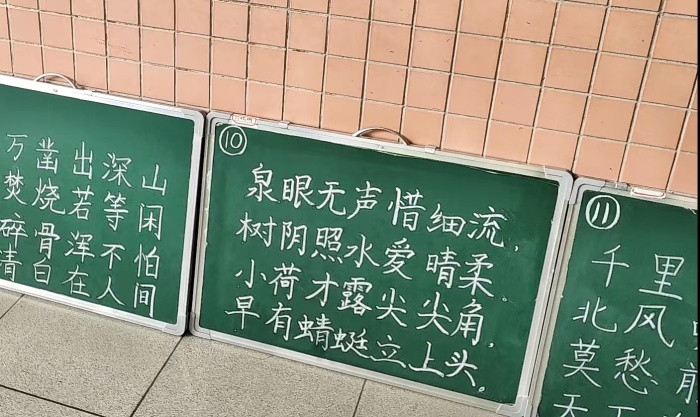 万凿出深山
焚烧若等闲
碎骨浑不怕
清白在人间
⑩
泉眼无声惜细流，
树阴照水爱晴柔。
小荷才露尖尖角，
早有蜻蜓立上头。
⑪
千里
北风
莫愁前
天下